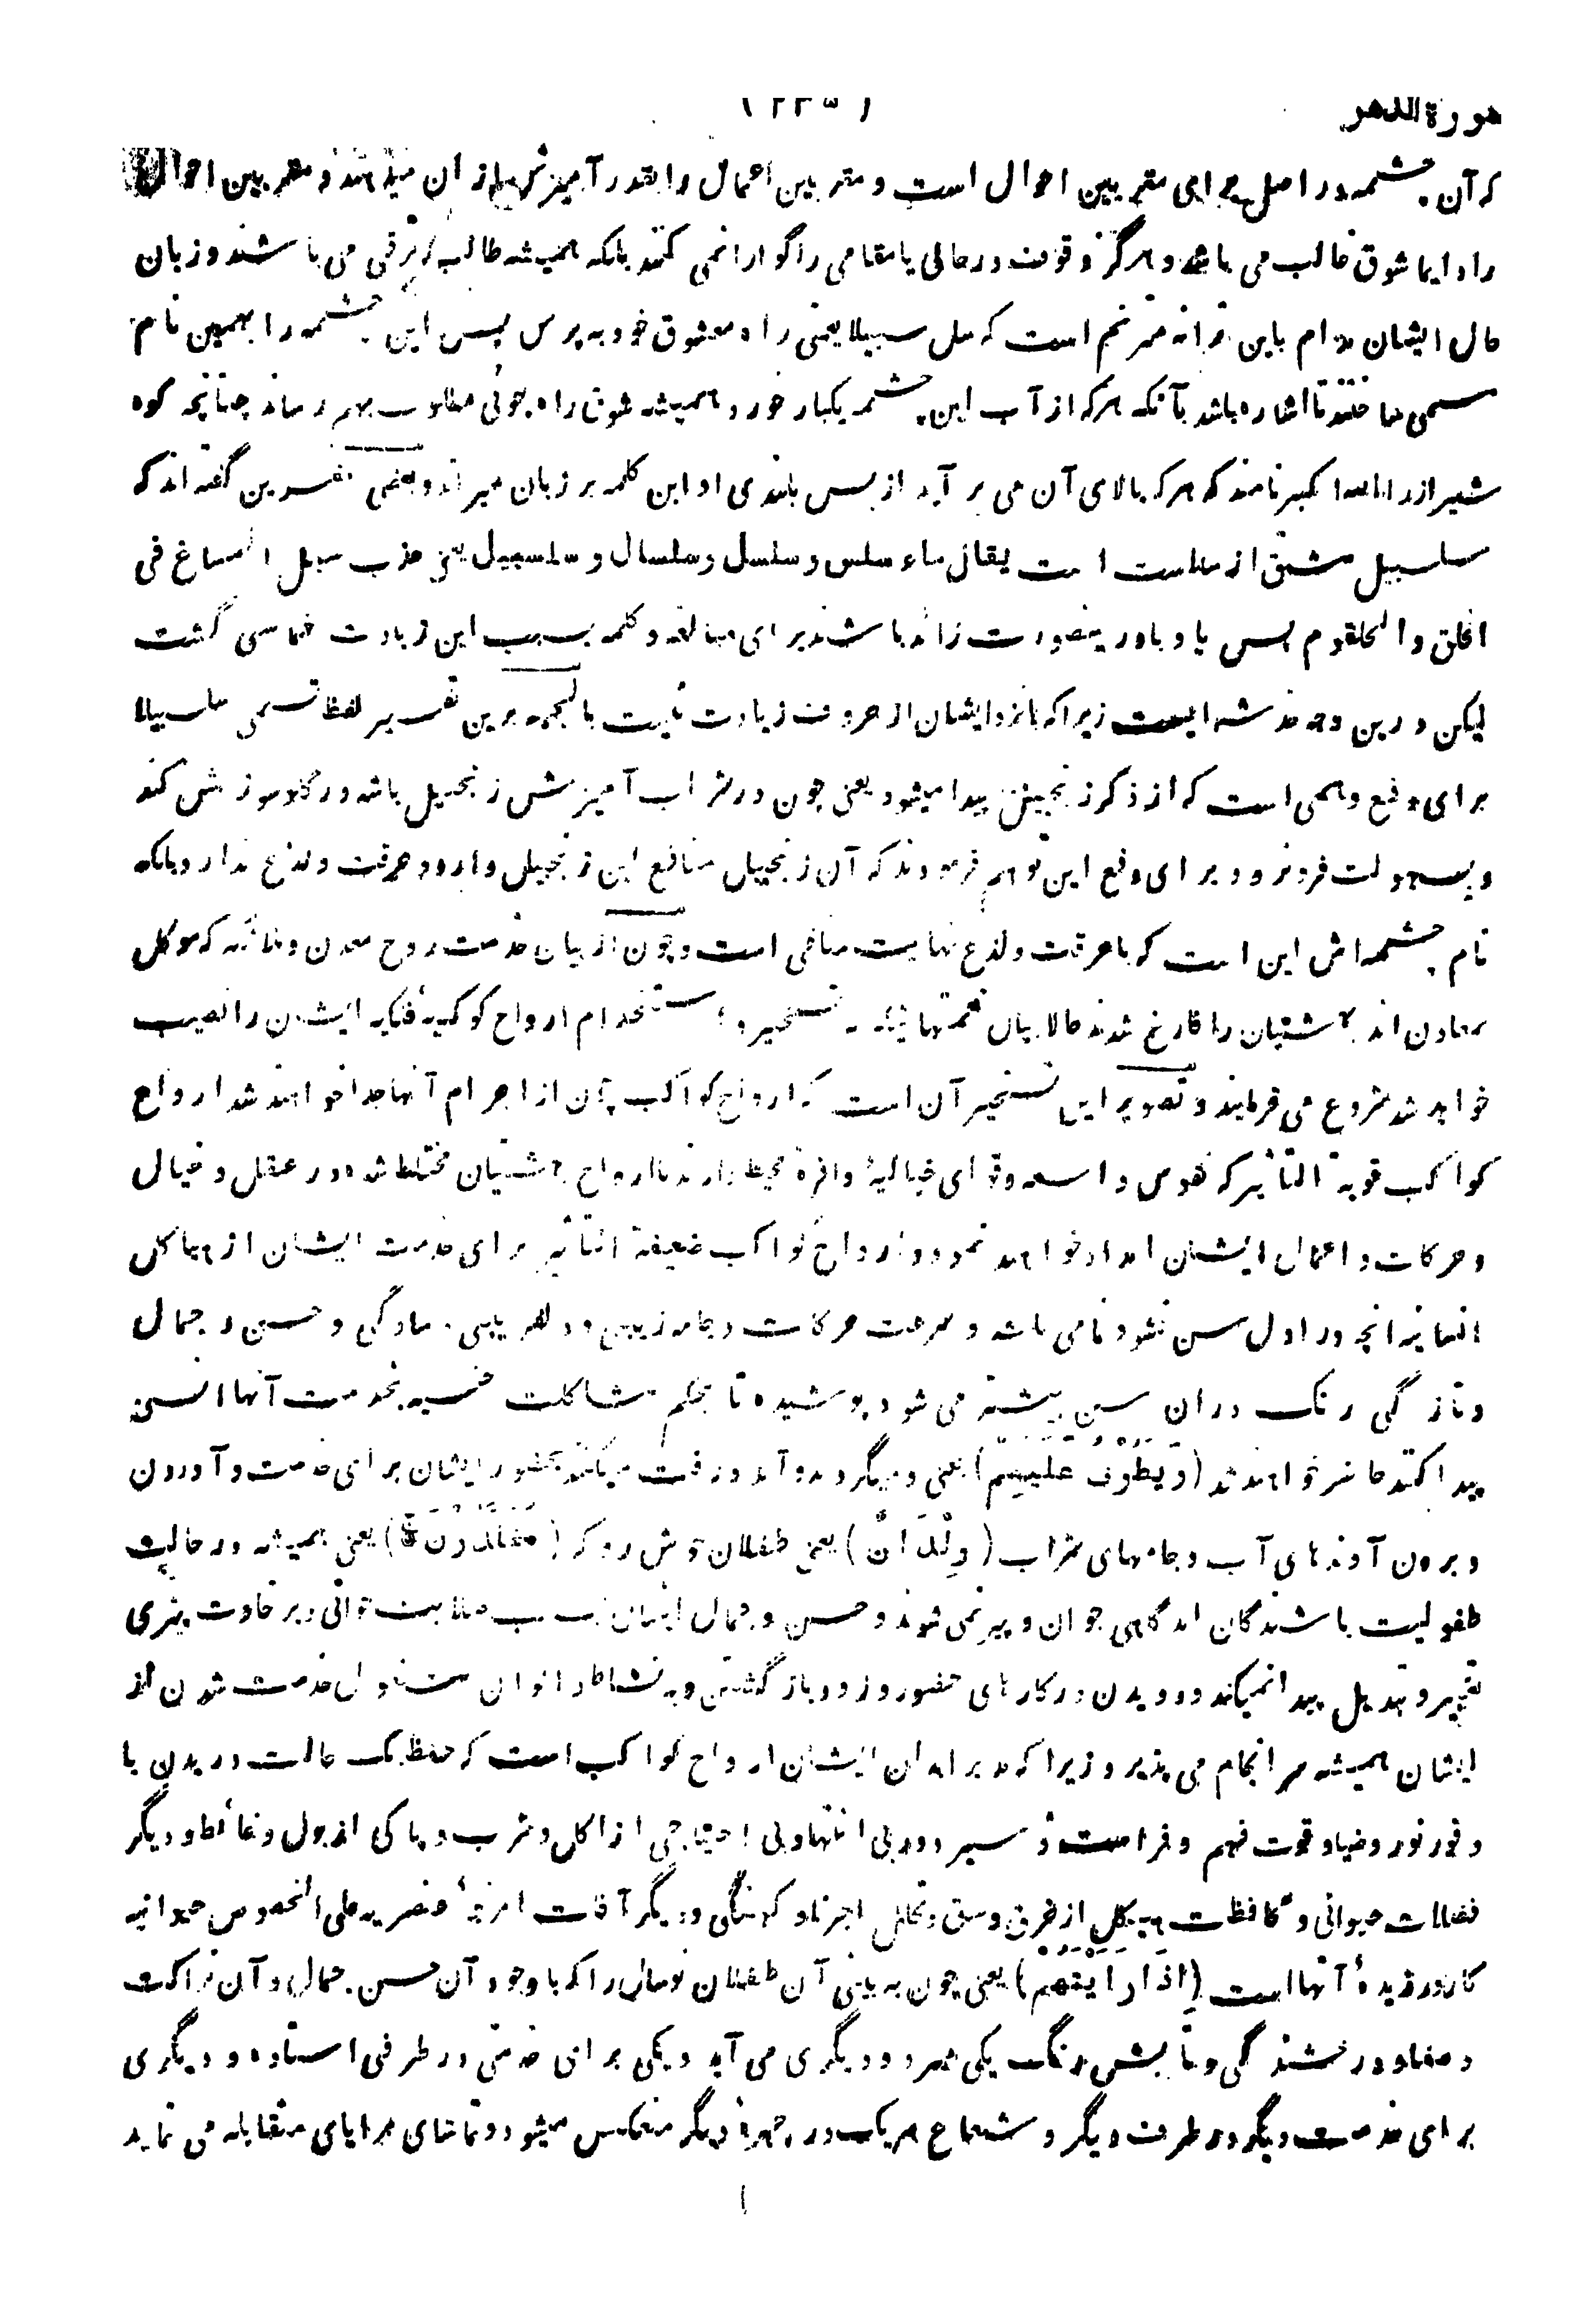 سورة الدهر
(٢٣٥)
که آن چشمه در اصل برای مقربین احوال است و مقربین اعمال را بقدر آمیزش از ان میدهند و مقربین احوال
را دایما شوق غالب می باشد و هرگز وقوف در حالی یا مقامی را گوارا نمی کنند بلکه همیشه طالب ترقی می باشند و زبان
حال ایشان مدام باین ترانه مترنم است که سل سبیلا یعنی راه معشوق خود به پرس پس این چشمه را بهمین نام
مسمی ساختند تا اشاره باشد بآنکه هرکه از آب این چشمه یکبار خورد همیشه شوق راه جوئی مطلوب بهم رساند چنانچه کوه
شیراز را الله اکبر نامند که هرکه بالای آن می بر آید از بس بلندی او این کلمه بر زبان میراند و بعضی مفسرین گفته اند که
سلسبیل مشتق از سلاست است یقال ماء سلس و سلسل و سلسال و سلسبیل یعنی عذب سهل المساغ فی
الحلق و الحلقوم پس یا و با درینصورت زائد باشند برای مبالغه و کلمه بسبب این زیادت خماسی گشت
لیکن درین وجه خدشه ایست زیرا که با نزد ایشان از حروف زیادت نیست بالجمله برین تفسیر لفظ تسمی سلسبیلا
برای دفع وهمی است که از ذکر زنجبیل پیدا میشود یعنی چون در شراب آمیزش زنجبیل باشد در گلو سوزش کند
و بسهولت فرو نرود برای دفع این توهم فرمودند که آن زنجبیل منافع این زنجبیل دارد و حرقت و لذع ندارد بلکه
نام چشمه اش این است که با حرقت و لذع نهایت منافی است و چون از بیان خدمت روح معدن و ملائکه که موکل
معادن اند بهشتیان را فارغ شدند حالا بیان نعمتهائیکه به تسخیر و استخدام ارواح کوکبیه فلکیه ایشان را نصیب
خواهد شد شروع می فرمایند و تصویر این تسخیر آن است که ارواح کواکب چون از اجرام آنها جدا خواهند شد ارواح
کواکب قویة التأثیر که نفوس واسعه و قوای خیالیهٔ وافرهٔ محیط دارند با ارواح بهشتیان مختلط شده در عقل و خیال
و حرکات و اعمال ایشان امداد خواهند نمود و ارواح کواکب ضعیفة التأثیر برای خدمت ایشان از هیاکل
انسانیه آنچه در اول سن نشو و نما می باشد و سرعت حرکات و جامه زیبی و دلفریبی و سادگی و حسن و جمال
و تازگی رنگ دران سن بیشتر می شود پوشیده تا بحکم مشاکلت جنسیه بخدمت آنها انس
پیدا کنند حاضر خواهند شد (وَيَطُوفُ عَلَيْهِمْ) یعنی و میگردند و آمد و رفت میکنند بحضور ایشان برای خدمت و آوردن
و بردن آوندهای آب و جامهای شراب (وِلْدَانٌ) یعنی طفلان خوش رو که (مُخَلَّدُوْنَ) یعنی همیشه در حالت
طفولیت باشندگان اند گاهی جوان و پیر نمی شوند و حسن و جمال ایشان بسبب صلابت جوانی و برخاوت پیری
تغییر و تبدیل پیدا نمیکند و دویدن در کارهای حضور و زود باز گشتن و به نشاط الوان متداول خدمت شدن از
ایشان همیشه سر انجام می پذیرد زیرا که مدبر ابدان ایشان ارواح کواکب است که حفظ یک حالت در بدن با
وفور نور و ضیا و قوت فهم و فراست و سیر و دور بی انتها و بی احتیاجی از اکل و شرب و پاکی از بول و غائط و دیگر
فضلات حیوانی و محافظت هیکل از خرق و سق و تحلل اجزا و کهنگی و دیگر آفات امزجهٔ عنصریه علی الخصوص حیوانیه
کار ورزیدهٔ آنها است (اِذَا رَاَيْتَهُمْ) یعنی چون به بینی آن طفلان نوسال را که با وجود آن حسن و جمال و آن نزاکت
و صفا و درخشندگی و تابش رنگ یکی میرود و دیگری می آید و یکی برای خدمتی در طرفی استاده و دیگری
برای خدمت دیگر در طرف دیگر و شعاع هر یک در چهرهٔ دیگر منعکس میشود و تماشای مرایای متقابله می نماید